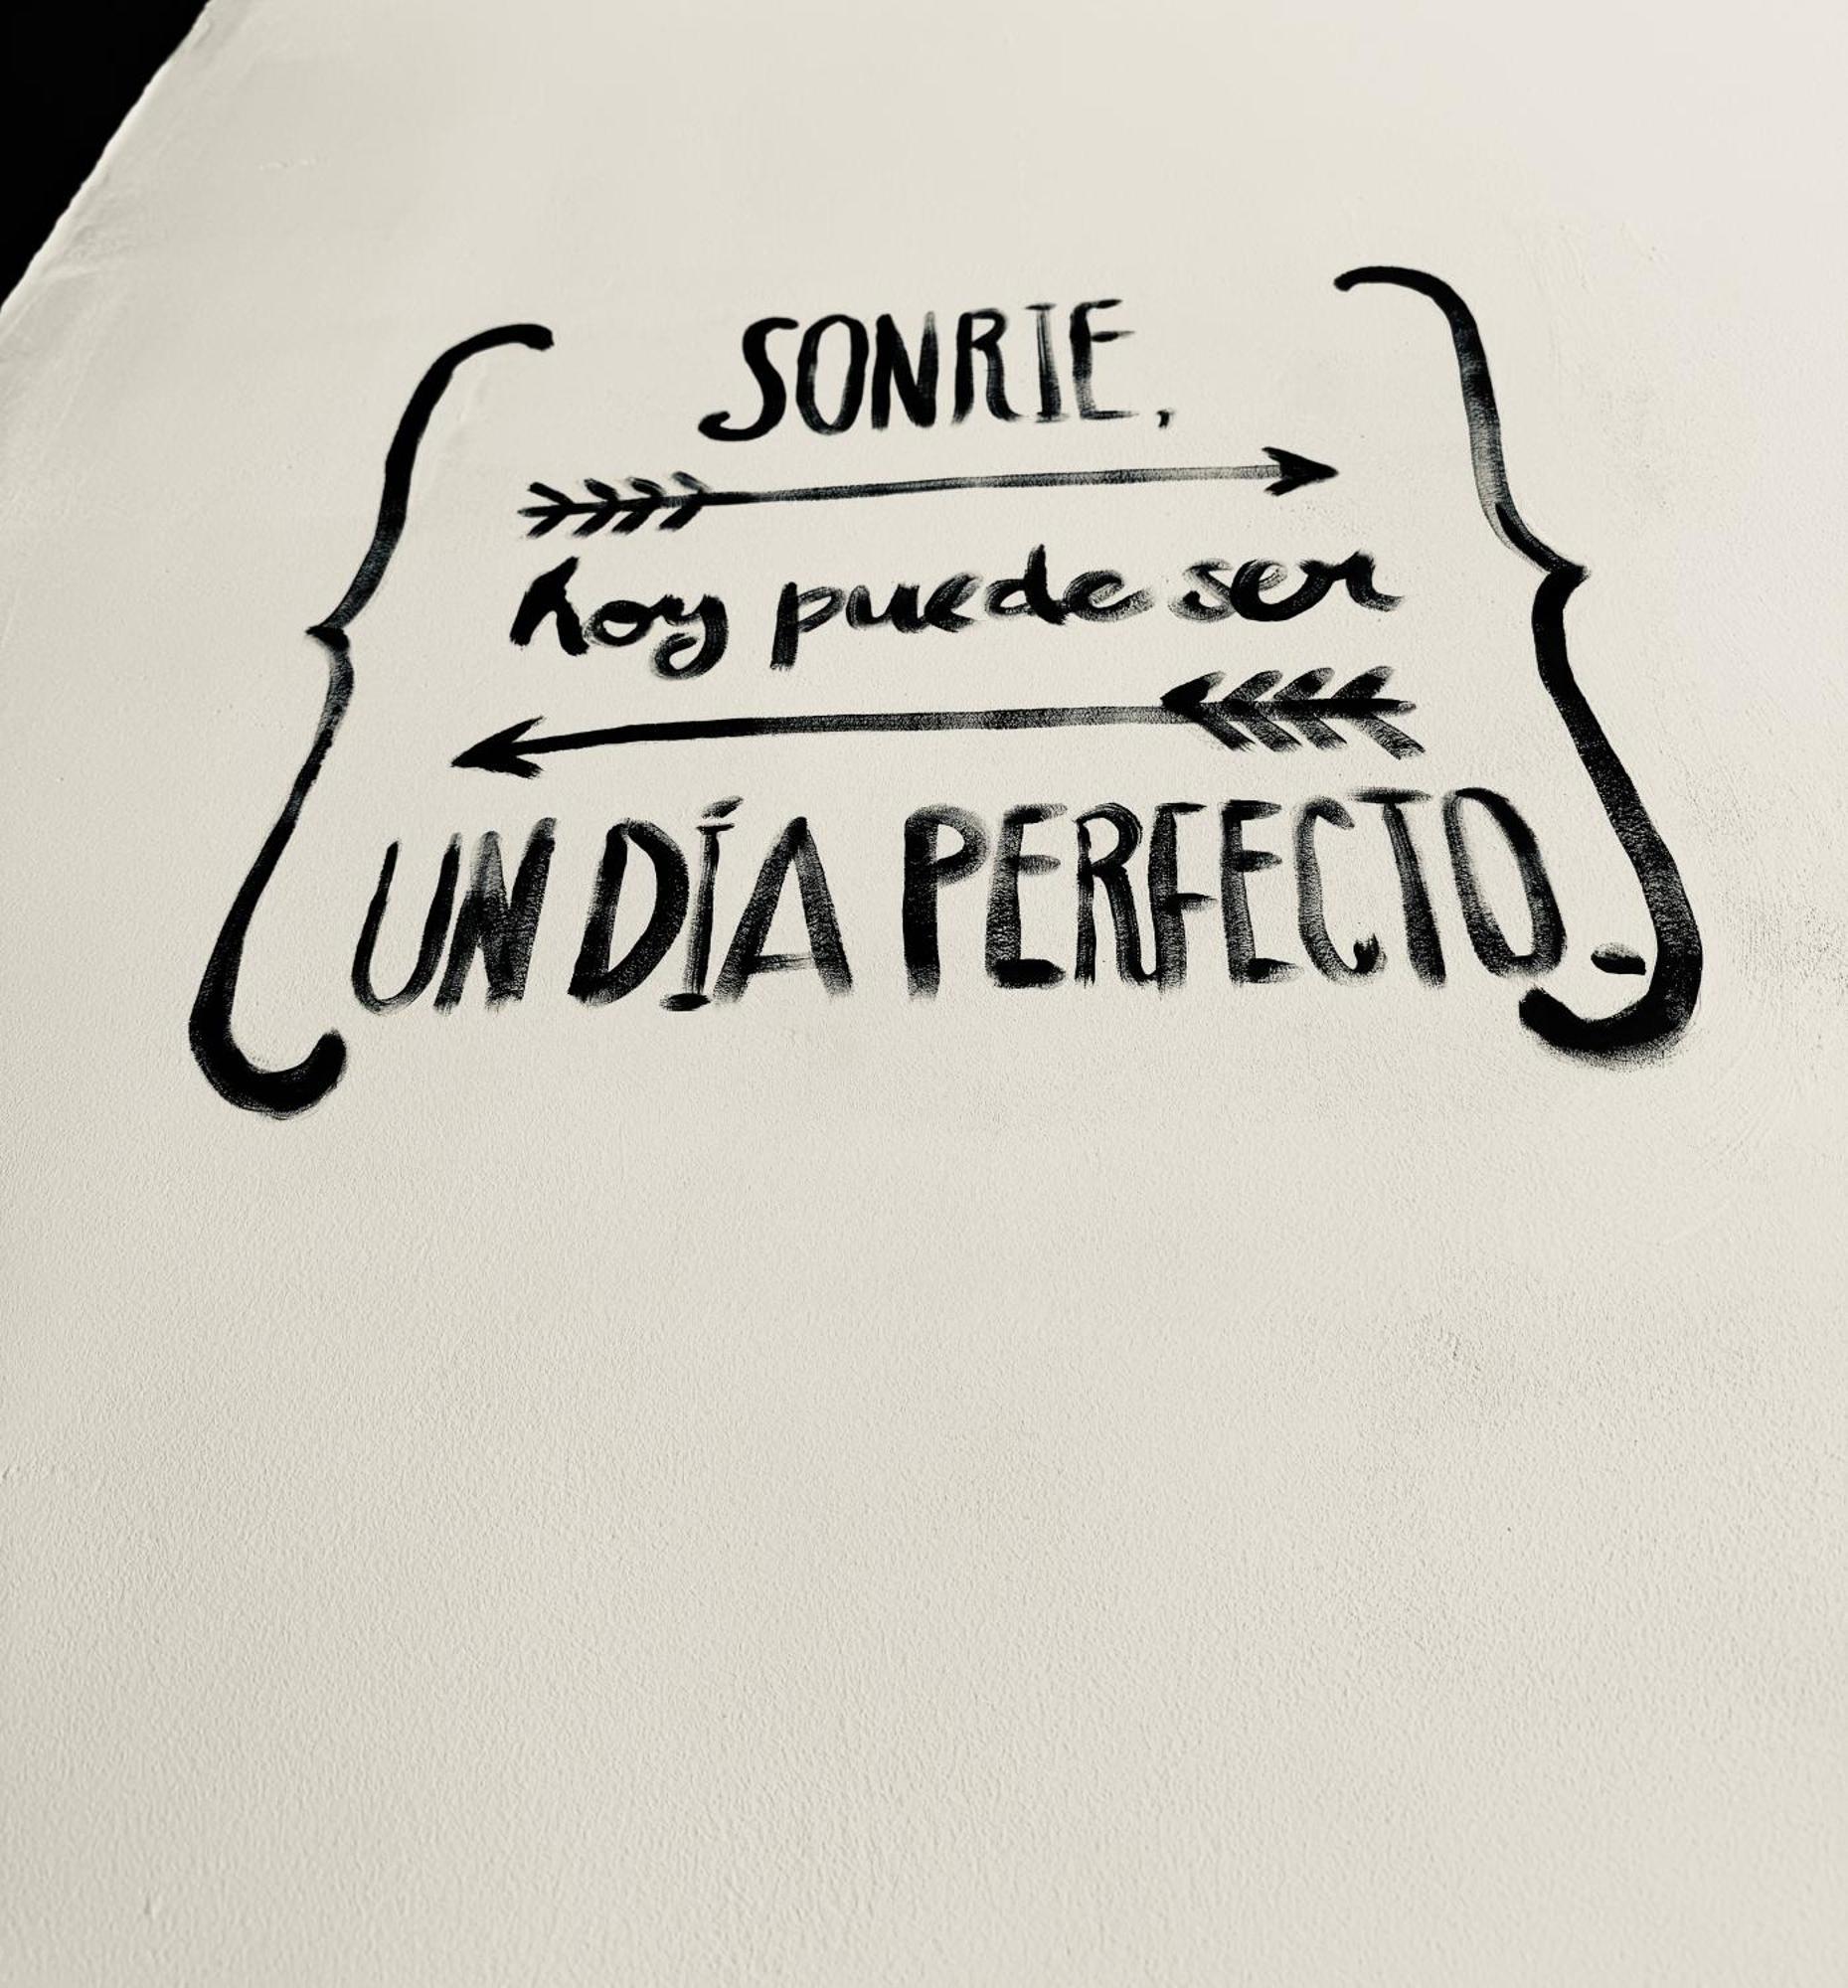 SONRIE,
hoy puede ser
UN DÍA PERFECTO.